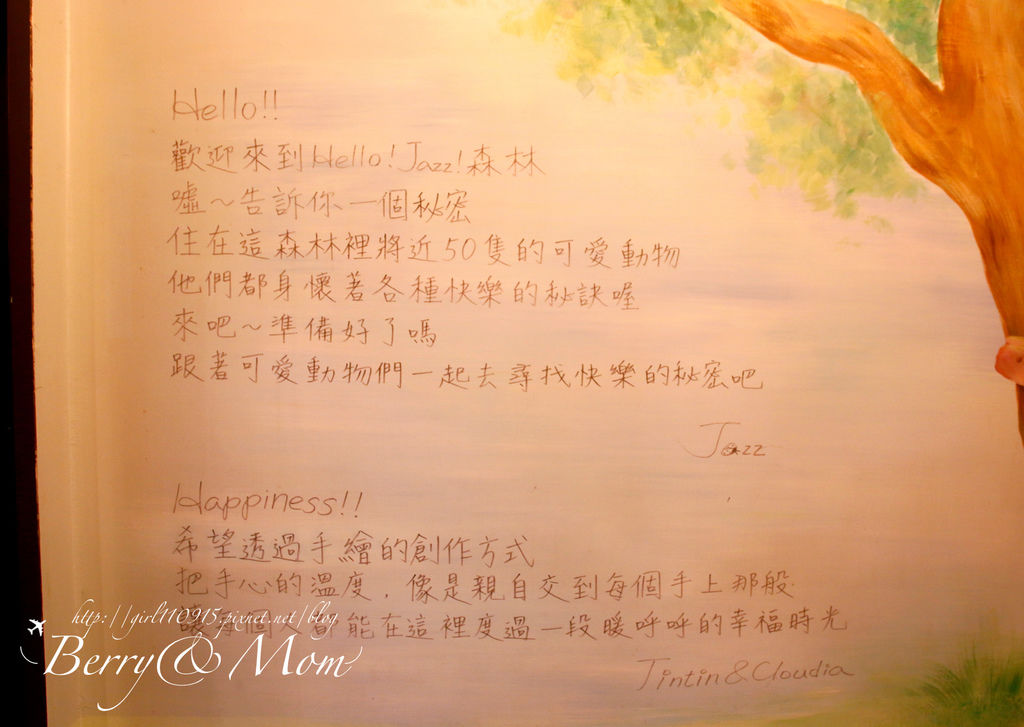 Hello!!
歡迎來到Hello!Jazz!森林
噓～告訴你一個秘密
住在這森林裡將近50隻的可愛動物
他們都身懷著各種快樂的秘訣喔
來吧～準備好了嗎
跟著可愛動物們一起去尋找快樂的秘密吧
Jazz
Happiness!!
希望透過手繪的創作方式
把手心的溫度，像是親自交到每個手上那般
讓每個人都能在這裡度過一段暖呼呼的幸福時光
Jintin&Cloudia
http://girl110915.pixnet.net/blog
Berry & Mom